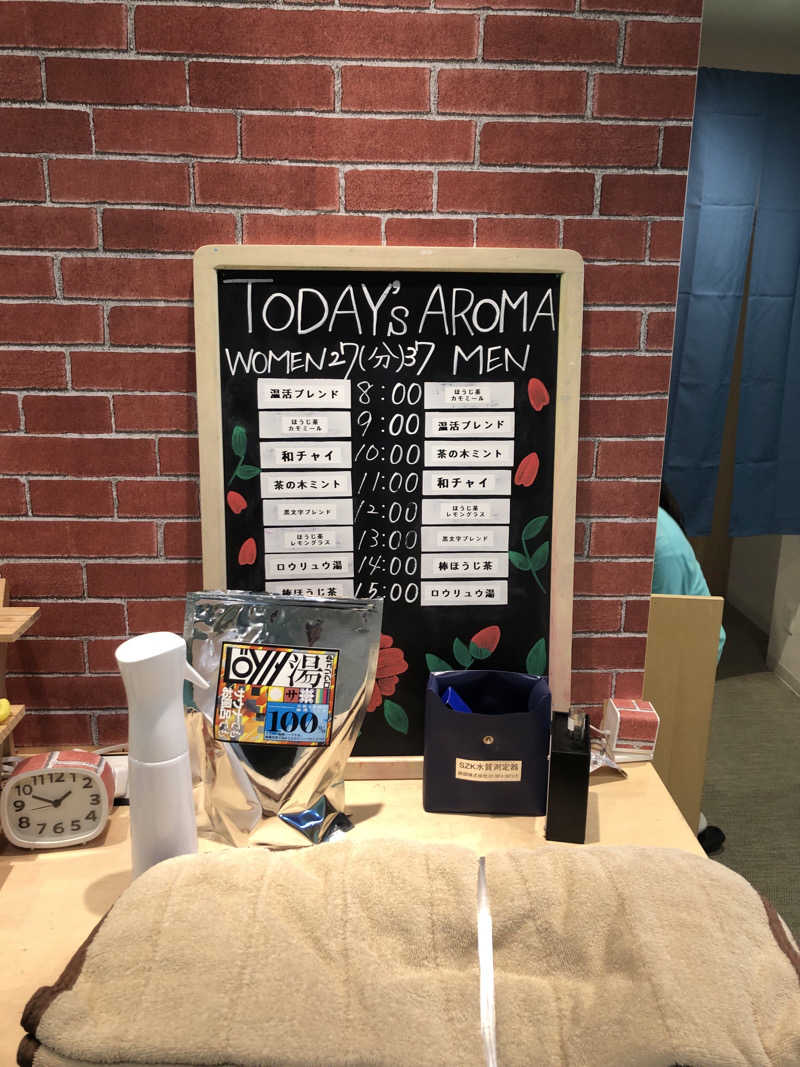 TODAY'S AROMA
WOMEN 27(分)37 MEN
温活ブレンド 8:00 ほうじ茶 カモミール
ほうじ茶 カモミール 9:00 温活ブレンド
和チャイ 10:00 茶の木ミント
茶の木ミント 11:00 和チャイ
黒文字ブレンド 12:00 ほうじ茶 レモングラス
ほうじ茶 レモングラス 13:00 黒文字ブレンド
ロウリュウ湯 14:00 棒ほうじ茶
棒ほうじ茶 15:00 ロウリュウ湯
湯
サウナでも
お風呂でも
100
SZK水質測定器
10 11 12 1 2 3 4 5 6 7 8 9